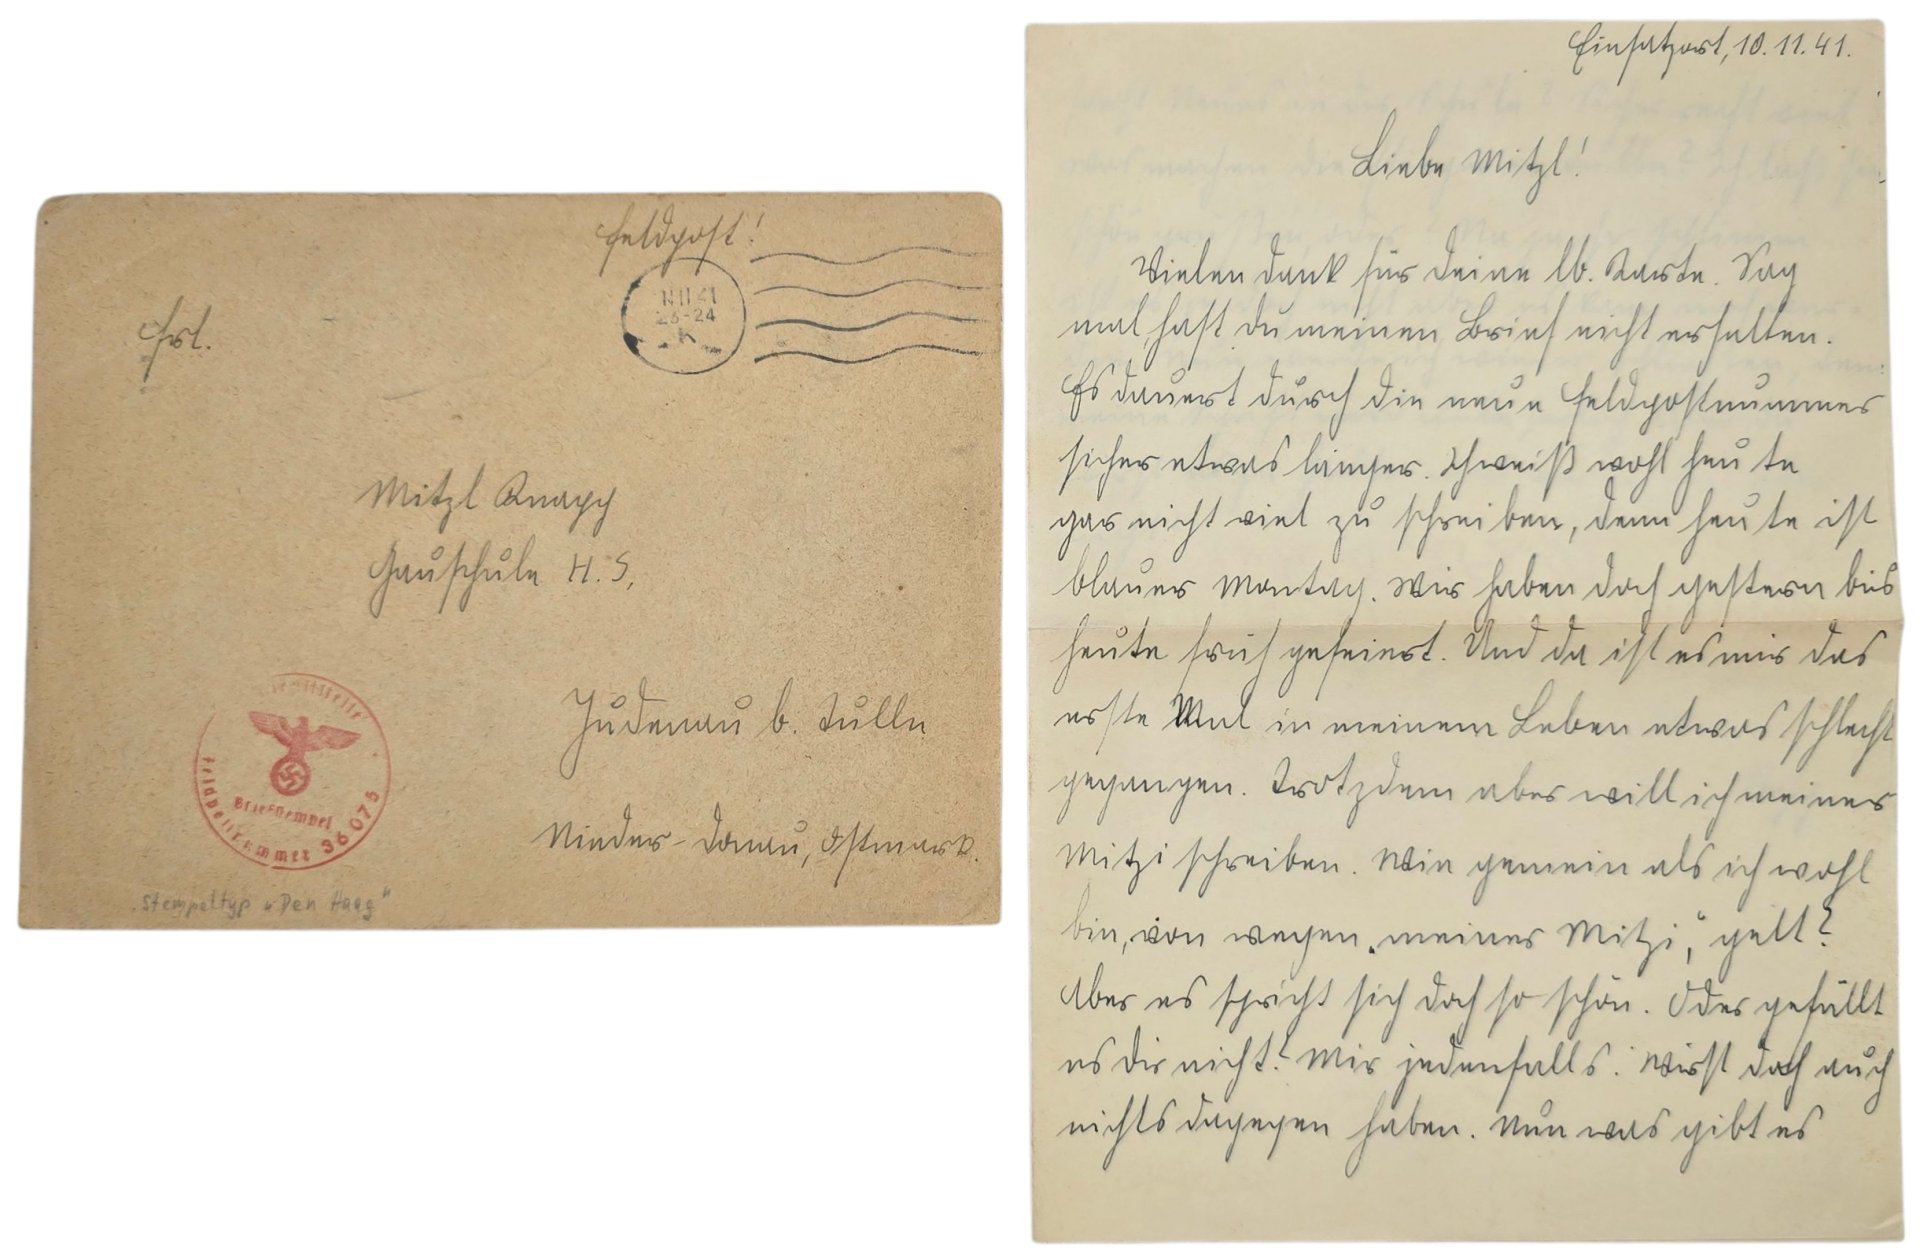 Feldpost!
11.11.41
23-24
K
Frl.
Mitzl Knapp
Gauschule H. S,
Judenau b. Tulln
Nieder-Donau, Ostmark.
Dienststelle
Briefstempel
Feldpostnummer 36075
"Stempeltyp "Den Haag"
Einsatzort, 10.11.41.
Liebe Mitzl!
Vielen Dank für Deine lb. Karte. Sag
mal, hast Du meinen Brief nicht erhalten.
Es dauert durch die neue Feldpostnummer
sicher etwas länger. Ich weiß wohl heute
gar nicht viel zu schreiben, denn heute ist
blauer Montag. Wir haben doch gestern bis
heute früh gefeiert. Und da ist es mir das
erste Mal in meinem Leben etwas schlecht
gegangen. Trotzdem aber will ich meiner
Mitzi schreiben. Wie gemein als ich wohl
bin, von wegen „meiner Mitzi", gell?
Aber es spricht sich doch so schön. Oder gefällt
es Dir nicht? Mir jedenfalls. Wirst doch auch
nichts dagegen haben. Nun was gibt es